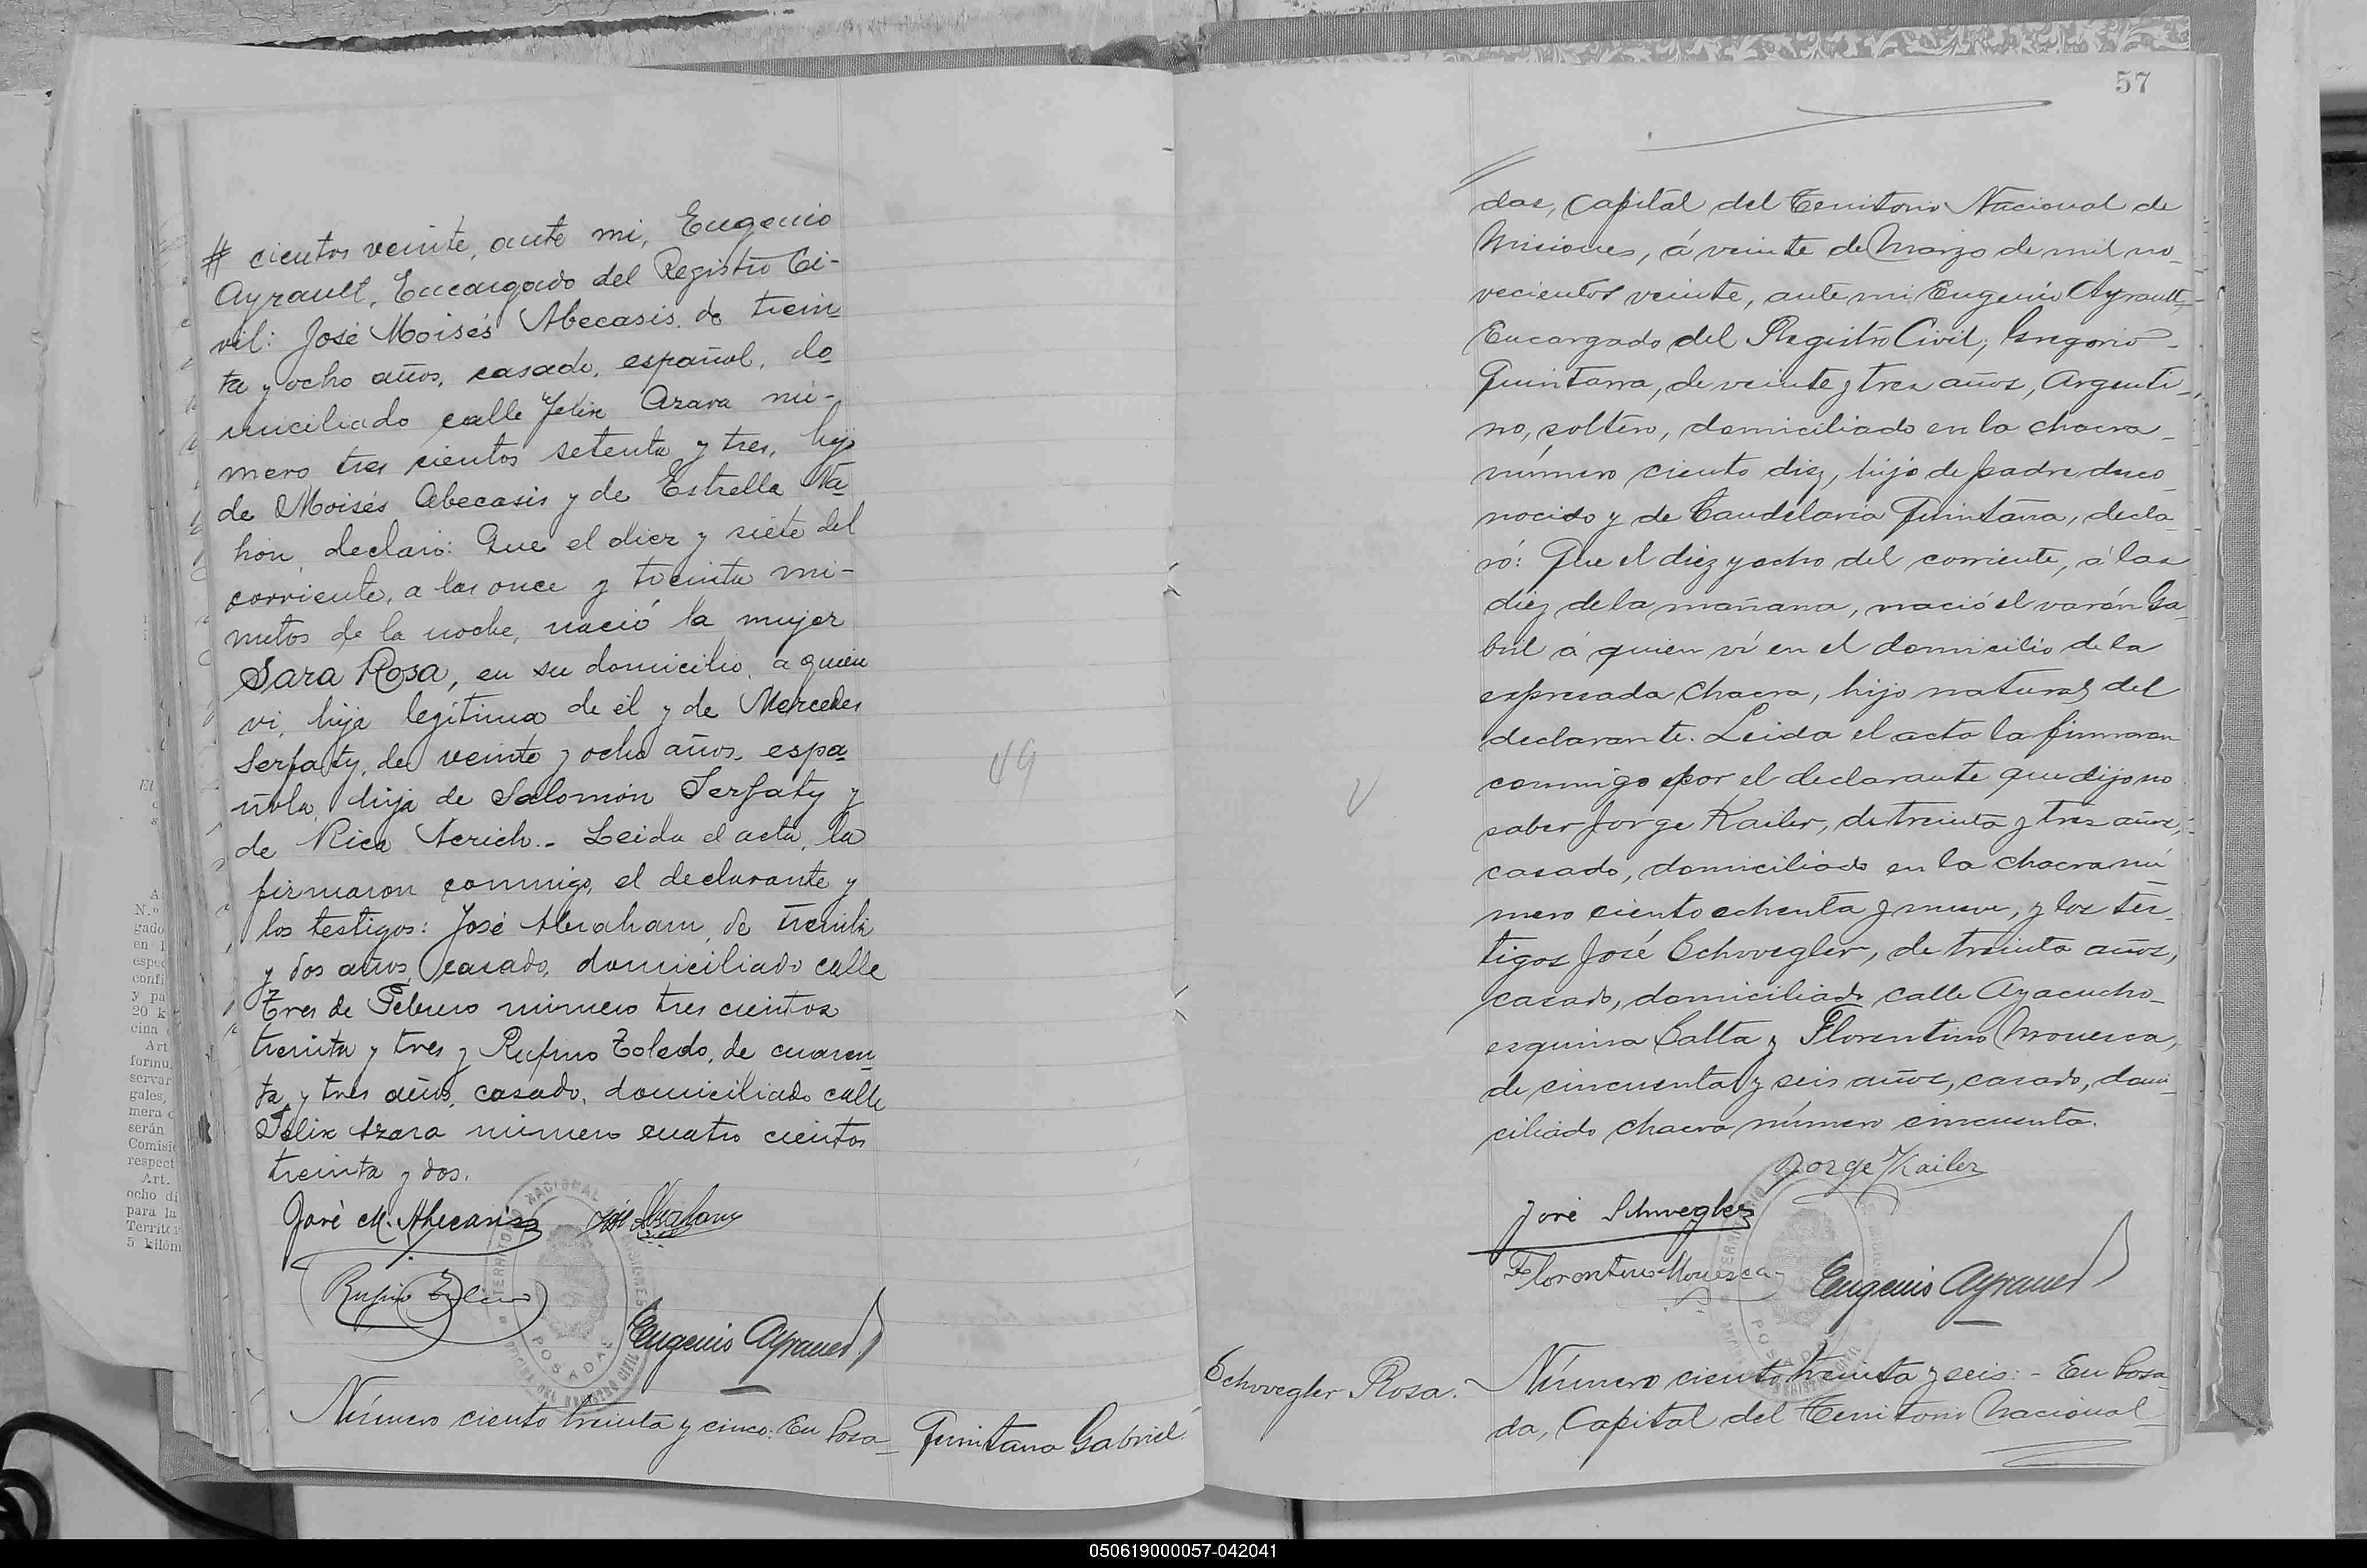 # cientos veinte, ante mi, Eugenio
Ayrault, Encargado del Registro Ci-
vil: José Moisés Abecasis, de trein
ta y ocho años, casado, español, do
miciliado calle Felix Azara nú-
mero tres cientos setenta y tres, hijo
de Moisés Abecasis y de Estrella Na
hón, declaró: Que el diez y siete del
corriente, a las once y treinta mi-
nutos de la noche, nació la mujer
Sara Rosa, en su domicilio, a quien
vi, hija legítima de él y de Mercedes
Serfaty, de veinte y ocho años, espa
ñola, hija de Salomón Serfaty y
de Rica Acrich.- Leida el acta, la
firmaron conmigo, el declarante y
los testigos: José Abraham, de treinta
y dos años, casado, domiciliado calle
Tres de Febrero número tres cientos
treinta y tres y Rufino Toledo, de cuaren
ta y tres años, casado, domiciliado calle
Felix Azara número cuatro cientos
treinta y dos.
José M. Abecasis José Abraham
Rufino Toledo
Eugenio Ayrault
TERRITORIO NACIONAL MISIONES
OFICINA DEL REGISTRO CIVIL
POSADAS
Número ciento treinta y cinco: En Posa
Quintana Gabriel
49
57
das, Capital del Territorio Nacional de
Misiones, á veinte de Marzo de mil no
vecientos veinte, ante mi Eugenio Ayrault,
Encargado del Registro Civil; Gregorio
Quintana, de veinte y tres años, Argenti-
no, soltero, domiciliado en la chacra
número ciento diez, hijo de padre desco
nocido y de Candelaria Quintana, decla
ró: Que el diez y ocho del corriente, á las
diez de la mañana, nació el varón Ga
briel á quien ví en el domicilio de la
expresada chacra, hijo natural del
declarante. Leida el acta la firmaron
conmigo por el declarante que dijo no
saber Jorge Kailer, de treinta y tres años,
casado, domiciliado en la chacra nú
mero ciento ochenta y nueve, y los tes-
tigos José Schwegler, de treinta años,
casado, domiciliado calle Ayacucho
esquina Salta y Florentino Mouesca,
de cincuenta y seis años, casado, domi-
ciliado chacra número cincuenta.
Jorge Kailer
José Schwegler
Florentino Mouesca
Eugenio Ayrault
POSADAS
Schwegler Rosa.
Número ciento treinta y seis: - En Posa
da, Capital del Territorio Nacional
050619000057-042041